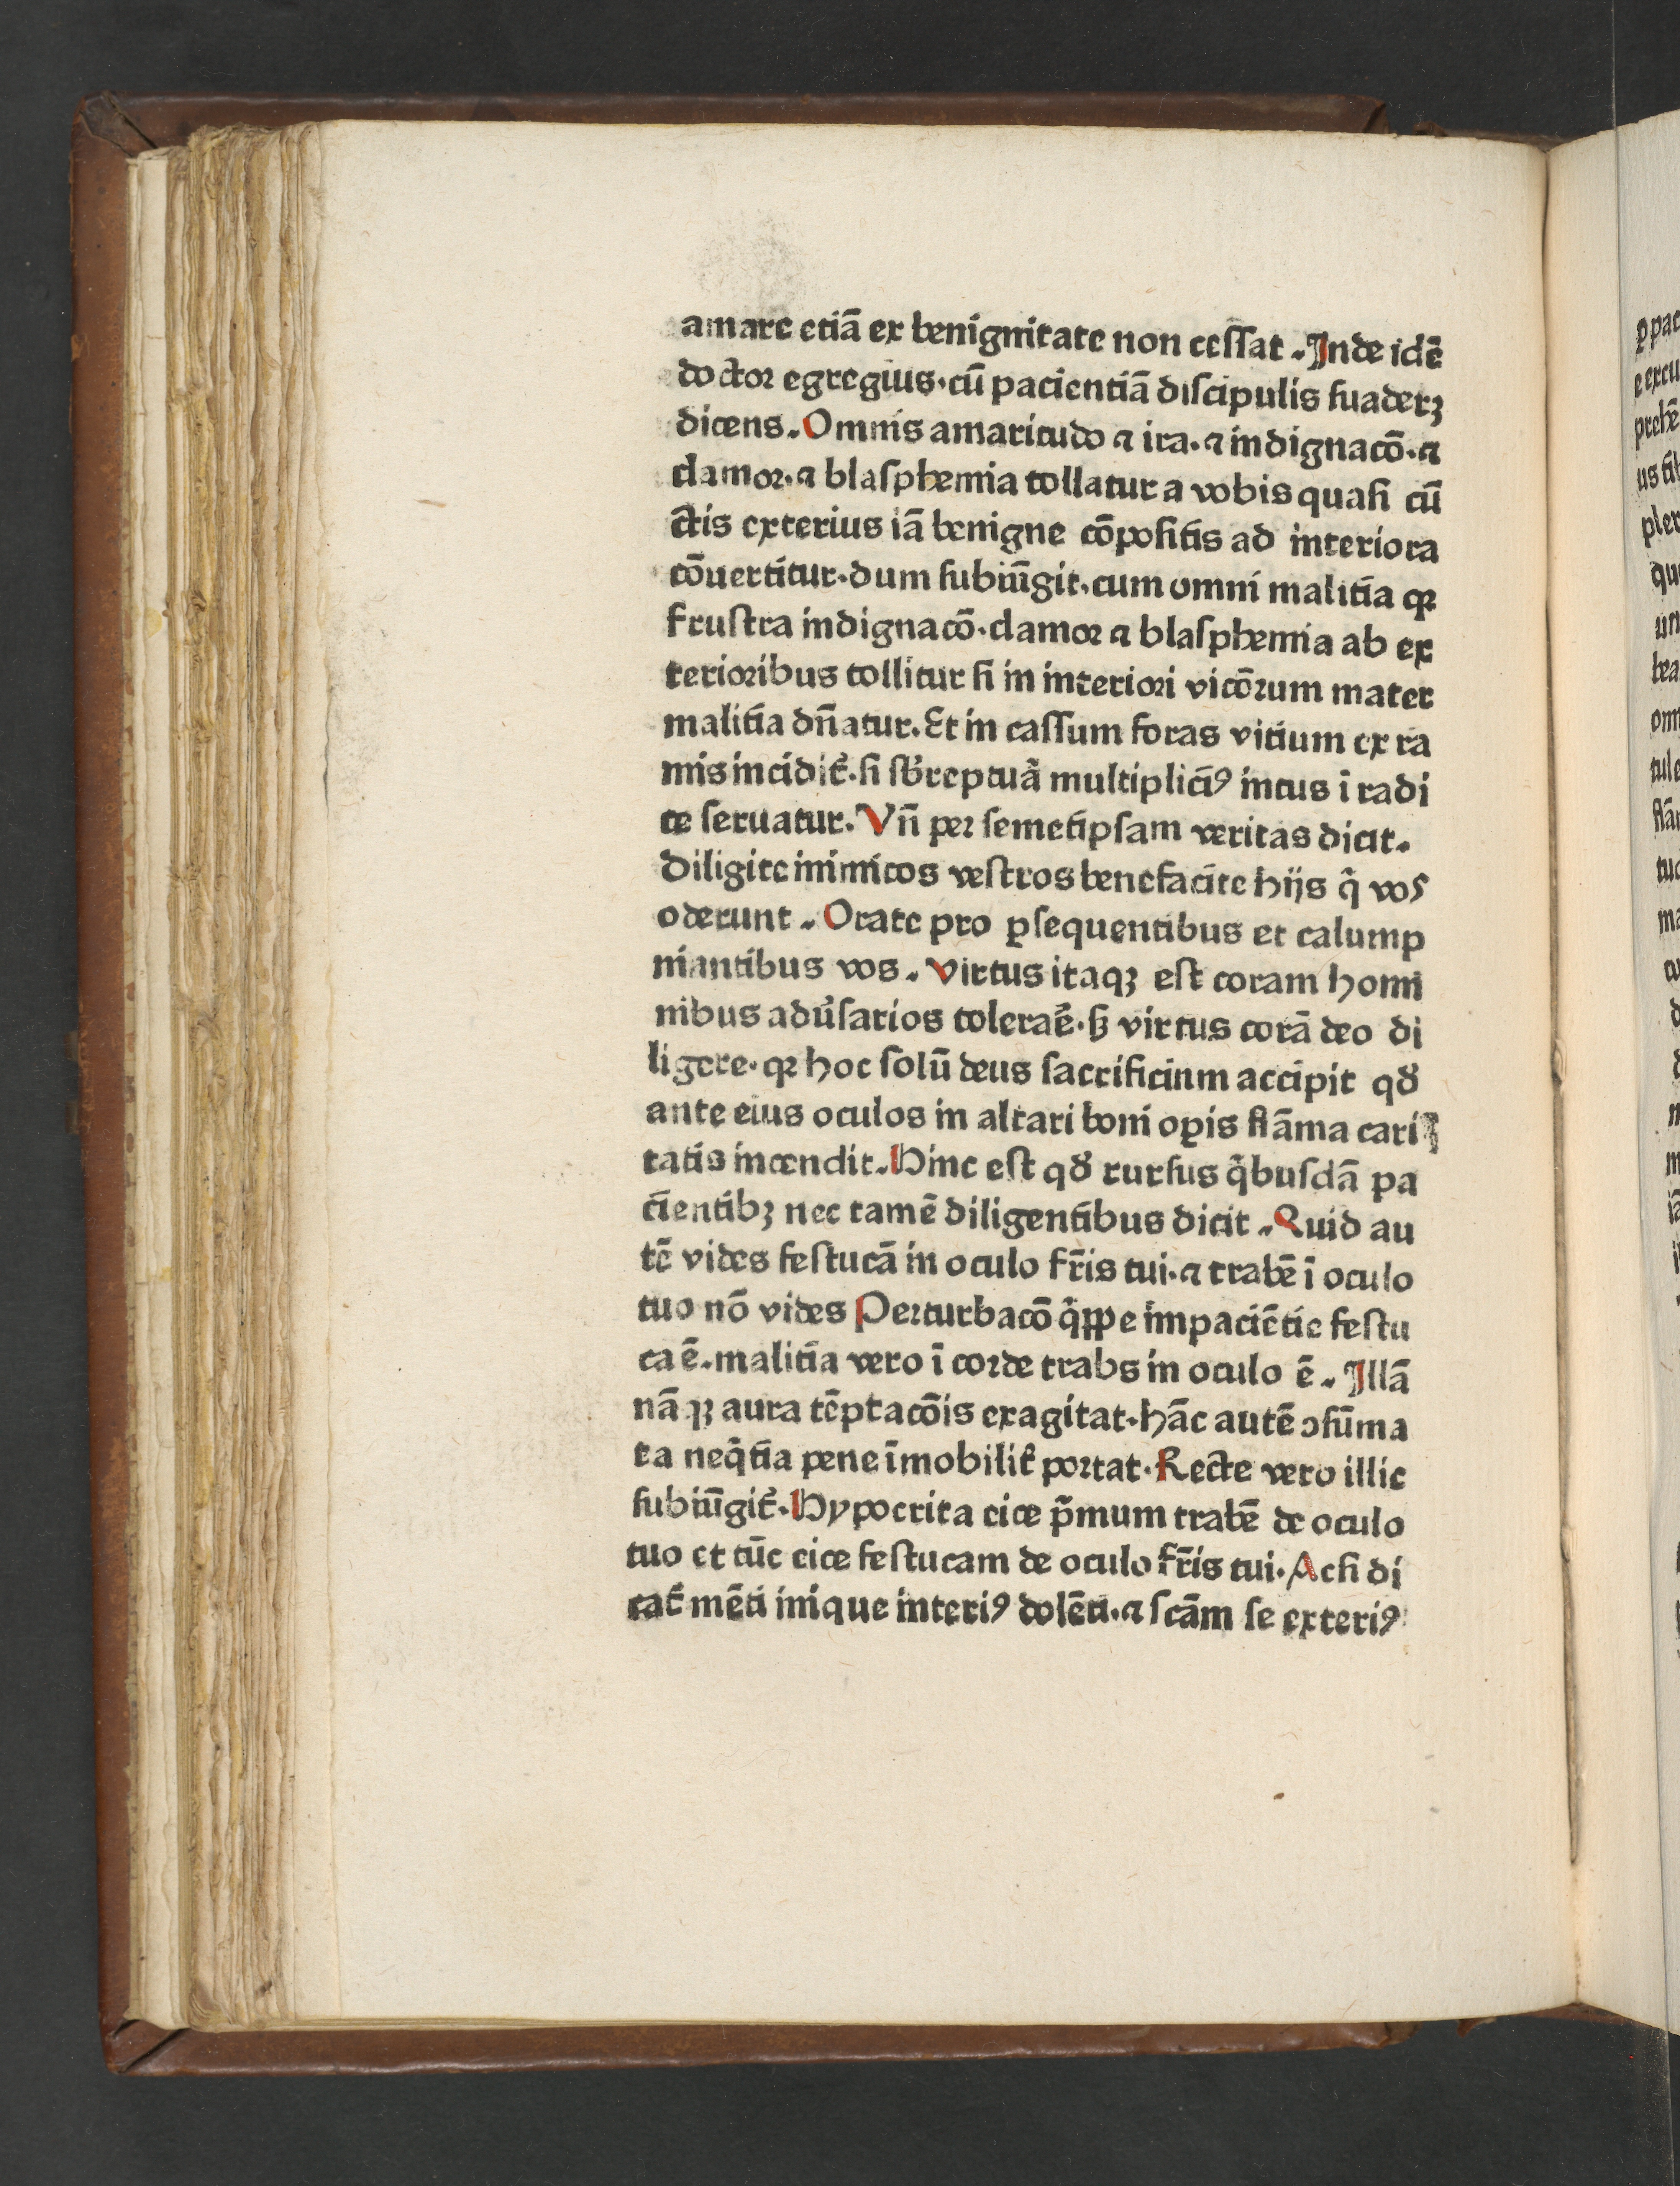 amare etiā ex benignitate non cessat. Inde idē
doctor egregius·cū pacientiā discipulis suaderꝫ
dicens. Omnis amaritudo ⁊ ira·⁊ indignacō·⁊
clamor·⁊ blasphemia tollatur a vobis quasi cū
ctis exterius iā benigne cōpositis ad interiora
cōuertitur·dum subiūgit·cum omni malitia qꝛ
frustra indignacō·clamor ⁊ blasphemia ab ex
terioribus tollitur si in interiori vicōrum mater
malitia dn̄atur. Et in cassum foras vitium ex ra
mis inciditᷣ·si sb̄reptuā multipliciꝰ intus ī radi
ce seruatur. Vn̄ per semetipsam veritas dicit.
Diligite inimicos vestros benefacite hijs q̄ vos
oderunt. Orate pro ꝑsequentibus et calump
niantibus vos. Virtus itaqꝫ est coram homi
nibus adūsarios toleraē·sꝫ virtus corā deo di
ligere·qꝛ hoc solū deus sacrificium accipit qð
ante eius oculos in altari boni oꝑis flāma cari
tatis incendit. Hinc est qð rursus q̄busdā pa
cientibꝫ nec tamē diligentibus dicit. Quid au
tē vides festucā in oculo fr̄is tui·⁊ trabē ī oculo
tuo nō vides Perturbacō q̄ꝑpe impaciētie festu
ca ē. malitia vero ī corde trabs in oculo ē. Illā
nā qꝫ aura tēptacōis exagitat·hāc autē ↄsūma
ta neq̄tia pene īmobilit᷑ portat·Recte vero illic
subiūgitᷣ·Hypocrita eice p̄mum trabē de oculo
tuo et tūc eice festucam de oculo fr̄is tui·Ac si di
catᷣ mēti inique interiꝰ dolēti·⁊ scām se exteriꝰ